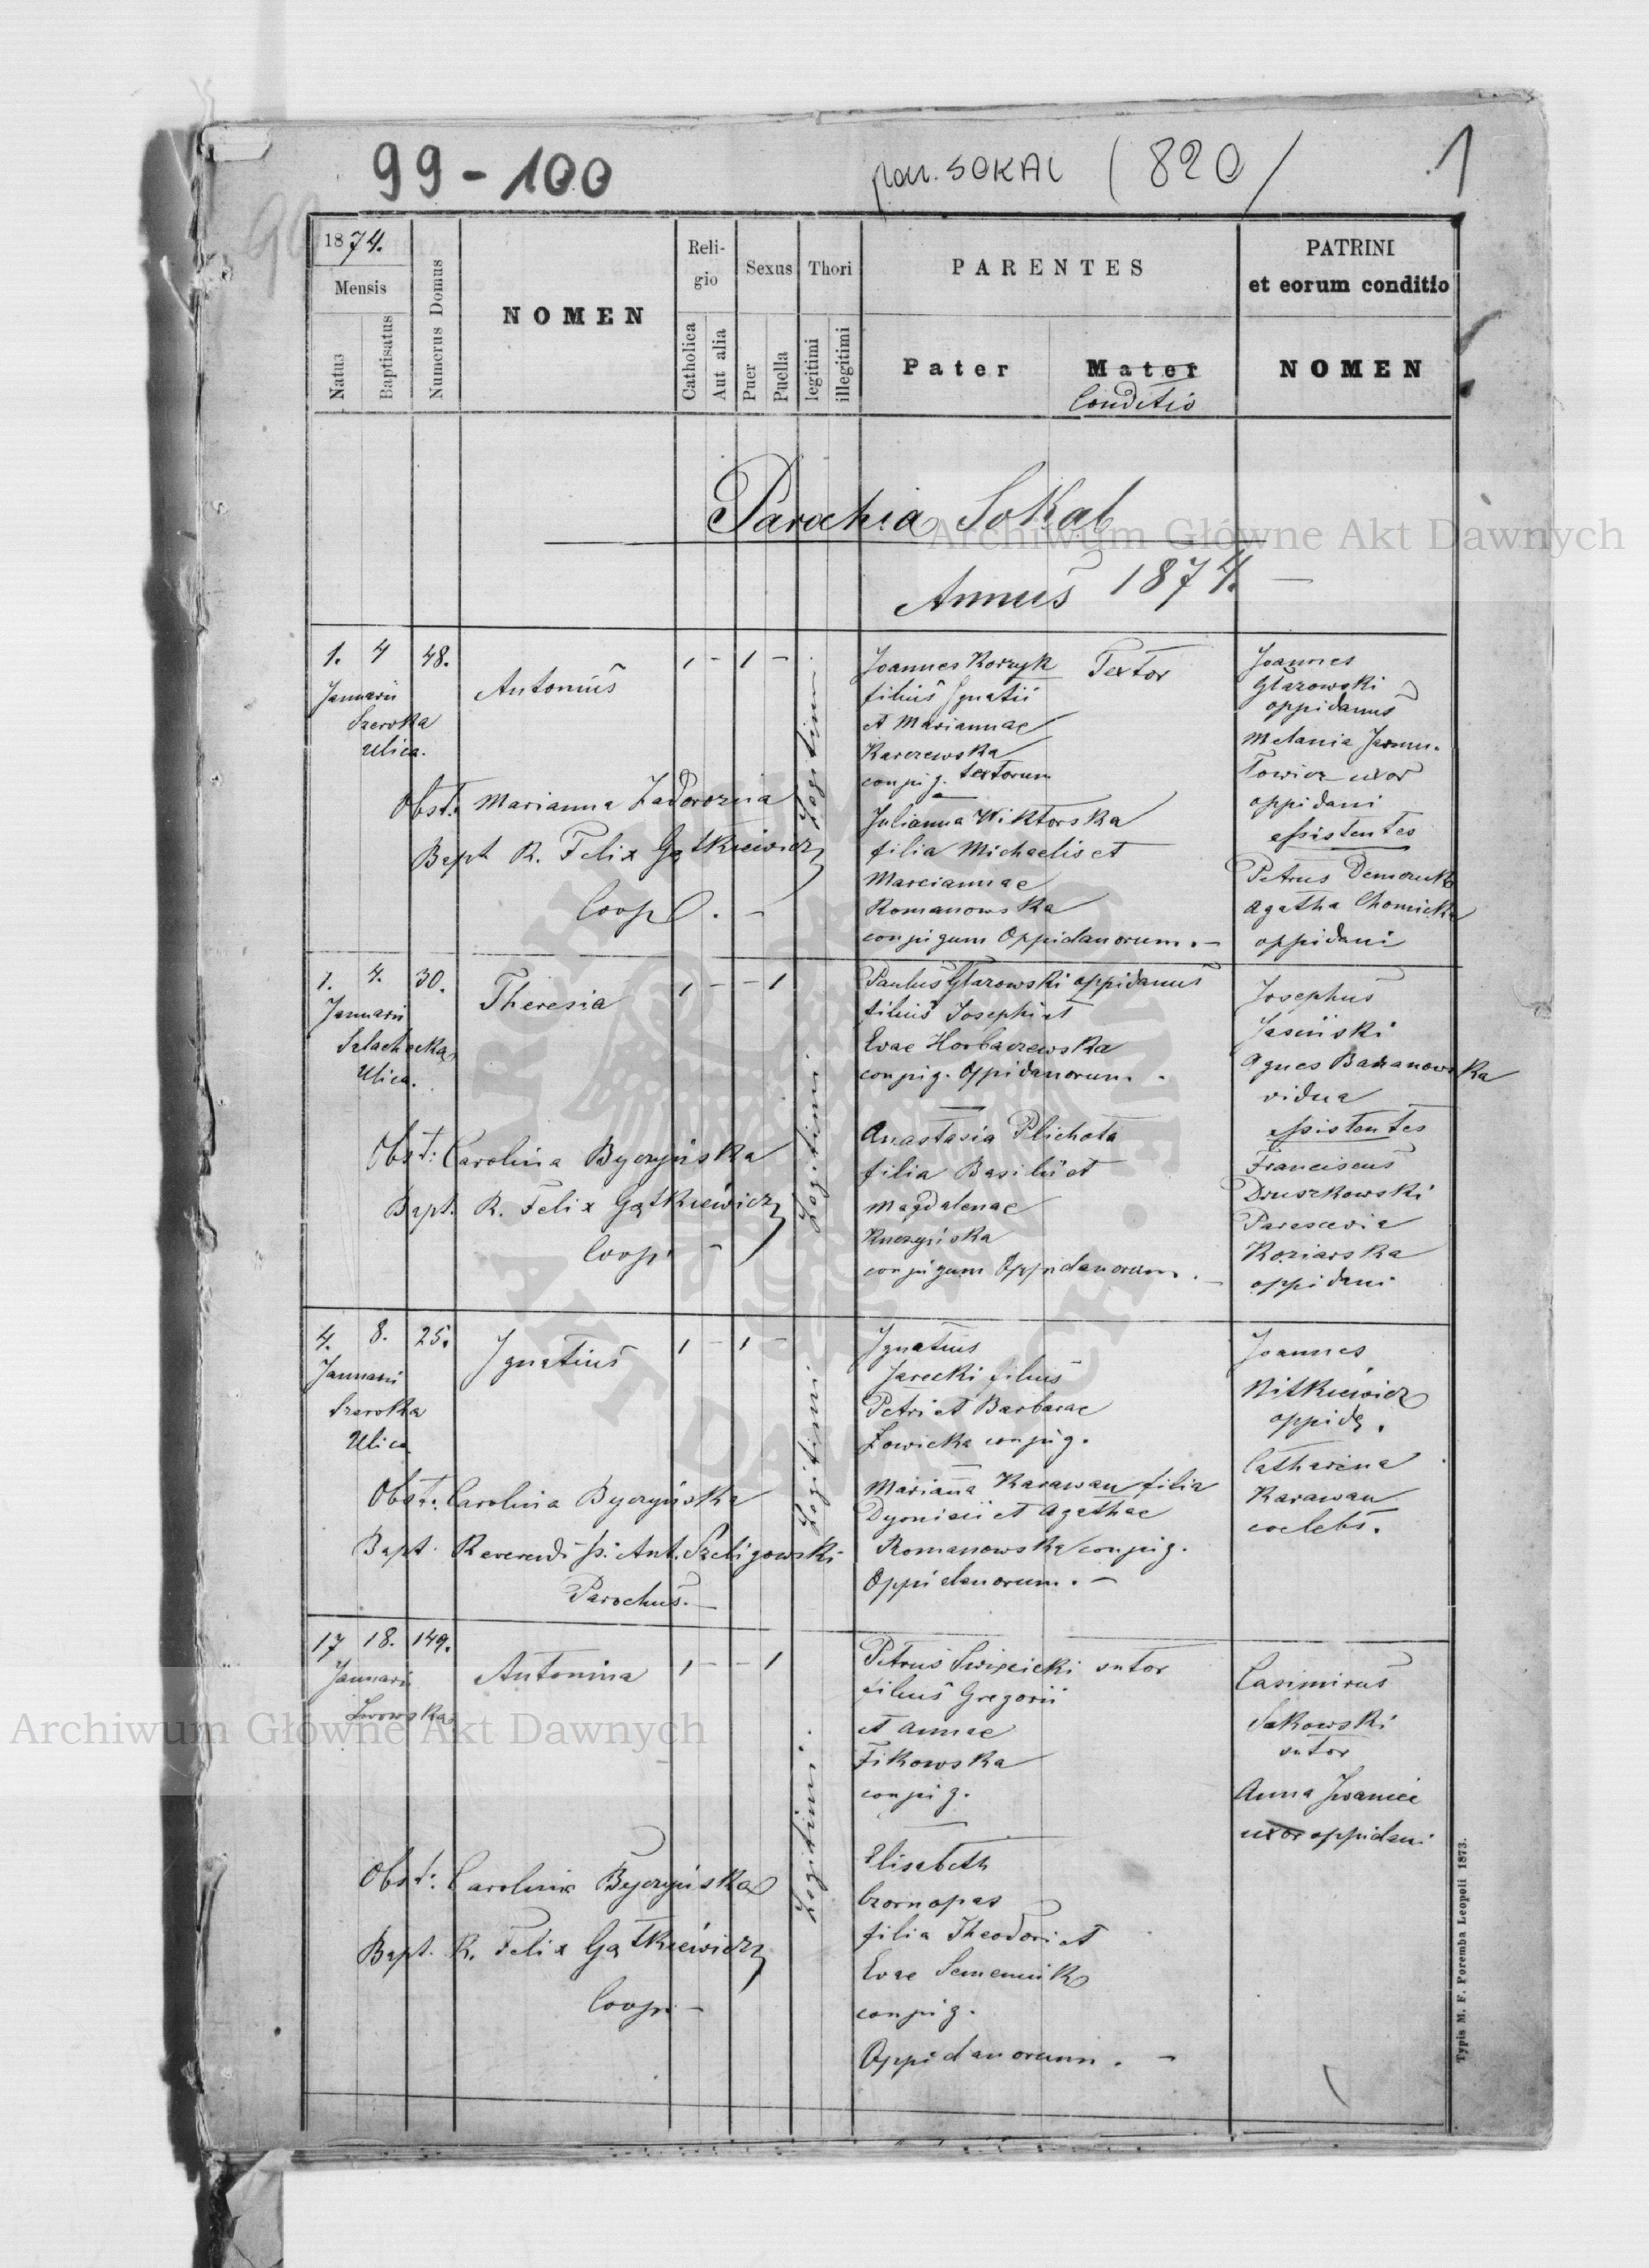 99 - 100
par. SOKAL (820/
1
1874.
Mensis
Natus
Baptisatus
Numerus Domus
NOMEN
Reli-
gio
Catholica
Aut alia
Sexus
Puer
Puella
Thori
legitimi
illegitimi
PARENTES
Pater
Mater
Conditio
PATRINI
et eorum conditio
NOMEN
Parochia Sokal
Archiwum Główne Akt Dawnych
Annus 1874. —
1. 4 48.
Januarii
Szeroka
Ulica.
Antonius
1 - 1 -
Legitimi
Obst. Marianna Zadorozna
Bapt R. Felix Gątkiewicz
Coop. -
Joannes Korzyk Textor
filius Ignatii
et Mariannae
Karczewska
conjug. textorum
Julianna Wiktorska
filia Michaelis et
Marciannae
Romanowska
conjugum Oppidanorum. -
Joannes
Glazowski
oppidanus
Melania Jarmu-
towicz uxor
oppidani
assistentes
Petrus Demczuk
Agatha Chomicka
oppidani
1. 4. 30.
Januarii
Szlachecka
Ulica.
Theresia
1 - - 1
Legitimi.
Obst: Carolina Byczyńska
Bapt. R. Felix Gątkiewicz
Coop. -
Paulus Glazowski oppidanus
filius Josephi et
Evae Horbaczewska
conjug. Oppidanorum.
Anastasia Plichota
filia Basilii et
Magdalenae
Kuczyńska
conjugum Oppidanorum. -
Josephus
Jasiński
Agnes Baranowska
vidua
assistentes
Franciscus
Druszkowski
Parascevia
Koziarska
oppidani
4. 8. 25.
Januarii
Szeroka
Ulica
Ignatius
1 - 1 -
Legitimi
Obst. Carolina Byczyńska
Bapt. Reverendiss. Ant. Szeligowski
Parochus. -
Ignatius
Jarecki filius
Petri et Barbarae
Łowicka conjug.
Marianna Karawan filia
Dyonisii et Agathae
Romanowska conjug.
Oppidanorum. -
Joannes
Nitkiewicz
oppid.
Catharina
Karawan
coelebs.
17 18. 149.
Januarii
Lwowska
Archiwum Główne Akt Dawnych
Antonina
1 - - 1
Legitimi.
Obst: Carolina Byczyńska
Bapt. R. Felix Gątkiewicz
Coop. -
Petrus Swięcicki sutor
filius Gregorii
et Annae
Fikowska
conjug.
Elisabeth
Czornopas
filia Theodori et
Evae Semeniuk
conjug.
Oppidanorum. -
Casimirus
Sakowski
sutor
Anna Iwaniec
uxor oppidani
Typis M. F. Poremba Leopoli 1873.
ARCHIWUM GŁÓWNE AKT DAWNYCH